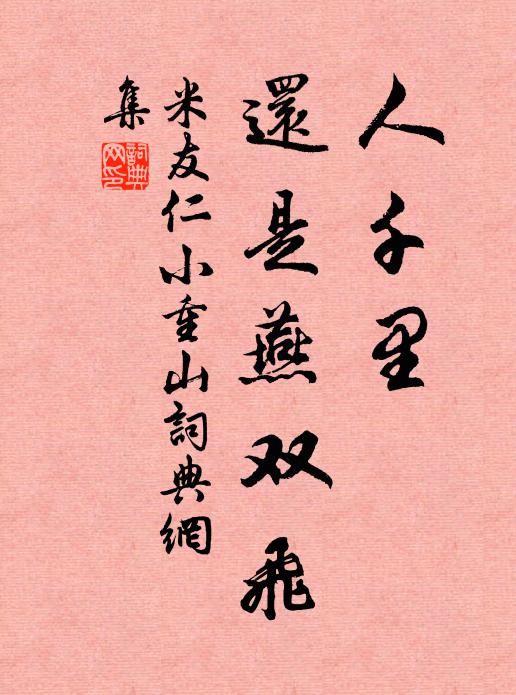 人千里
還是燕双飛
米友仁小重山詞典網
集
詞典網印